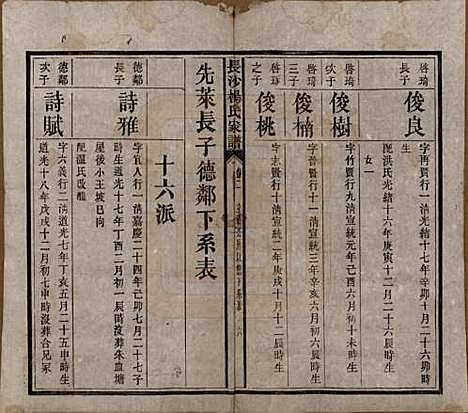 啓瑜
長子
俊良
字再賢行一淸光緒十七年辛卯十月二十六卯時生
配洪氏光緒十六年庚寅十二月二十六
女一
啓琦
次子
俊樹
字竹賢行九淸宣統元年己酉六月初十未時生
啓琦
三子
俊楠
字晉賢行十一淸宣統三年辛亥六月初六辰時生
啓琦
之子
俊桃
字志賢行十淸宣統二年庚戌十月十二辰時生
長沙楊氏家譜
卷二
先萊長子德鄰下系表
十六派
德鄰
長子
詩雅
字宜人行一淸嘉慶二十四年己卯七月二十七子
時生道光十七年丁酉二月初一辰時沒葬朱血塘
屋後小王坡巳向
配溫氏改醮
德鄰
次子
詩賦
字六義行二淸道光七年丁亥五月二十五申時生
道光十八年戊戌十二月初七申時沒葬合兄冢